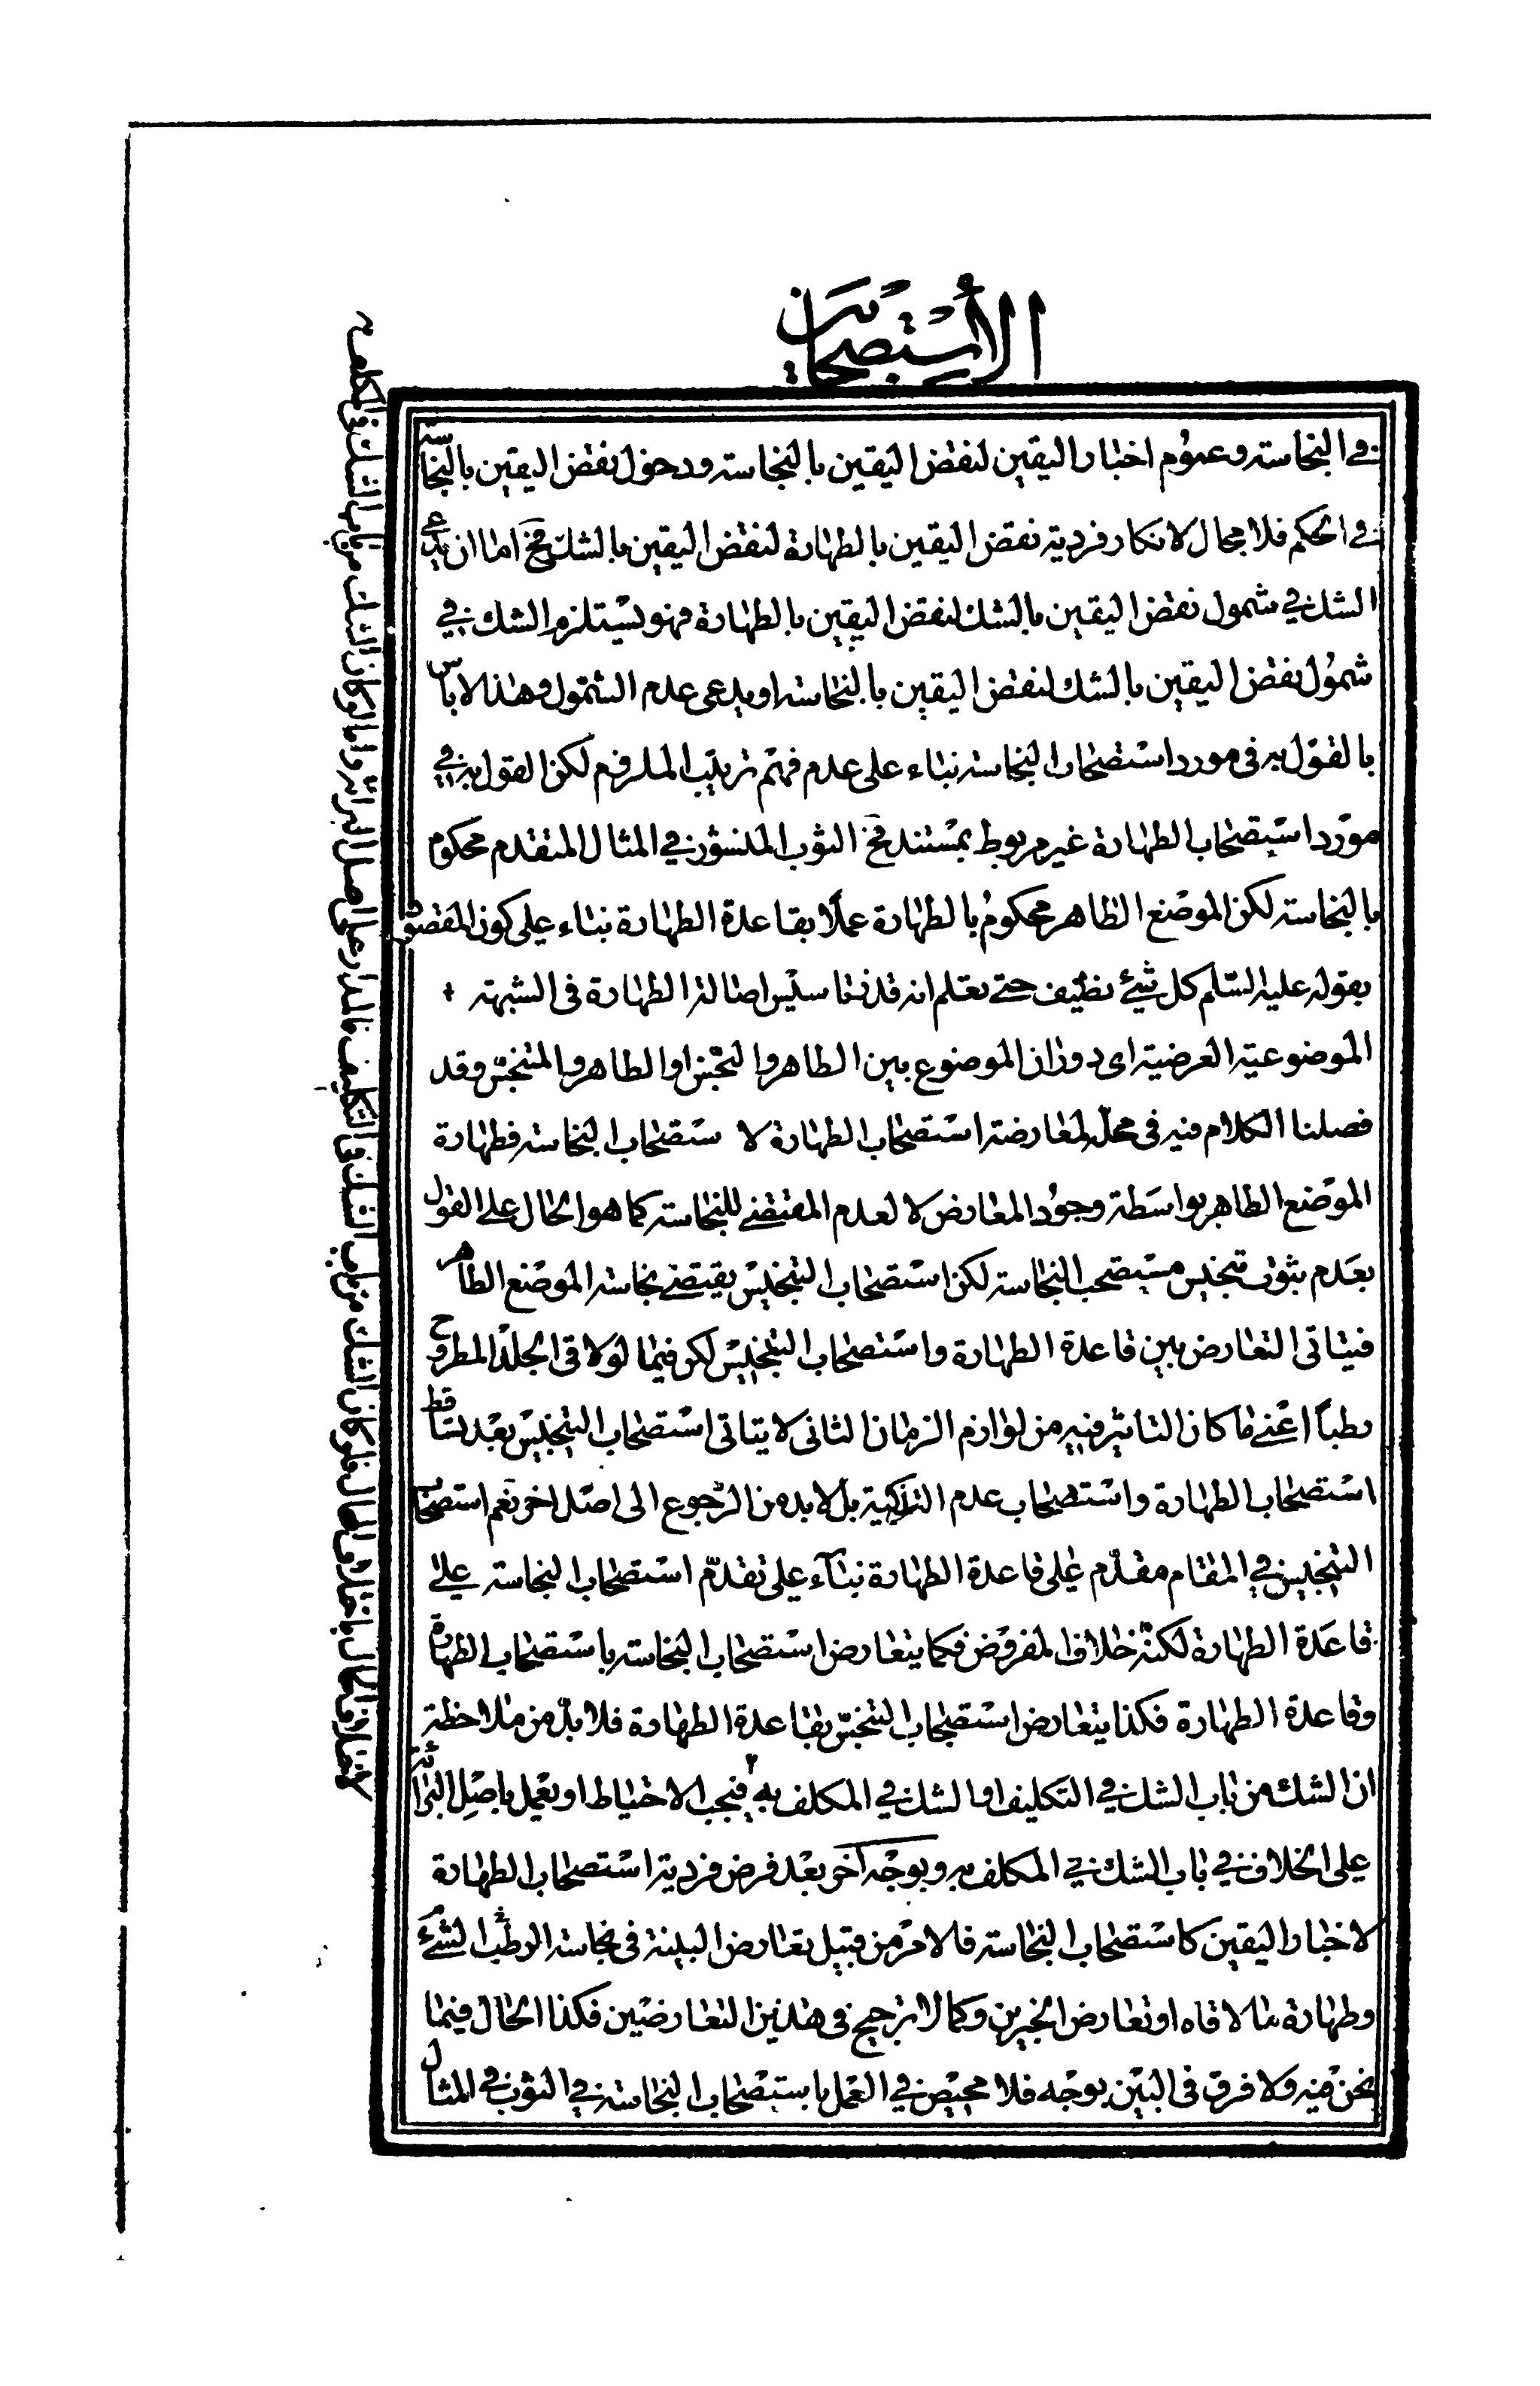 الاستصحاب
في النجاسة وعموم اخبار اليقين لنقض اليقين بالنجاسة ودخول نقض اليقين بالنجاسة
في الحكم فلا مجال لانكار فردية نقض اليقين بالطهارة لنقض اليقين بالشك فح اما ان يدعى
الشك في شمول نقض اليقين بالشك لنقض اليقين بالطهارة فهو يستلزم الشك في
شمول نقض اليقين بالشك لنقض اليقين بالنجاسة او يدعى عدم الشمول وهذا لا باس
بالقول به في مورد استصحاب النجاسة بناء على عدم فهم ترتيب الملزوم لكن القول به في
مورد استصحاب الطهارة غير مربوط بمستند فح الثوب المنشور في المثال المتقدم محكوم
بالنجاسة لكن الموضع الظاهر محكوم بالطهارة عملا بقاعدة الطهارة بناء على كون المقصود
بقوله عليه السلم كل شيء نظيف حتى تعلم انه قذر تاسيس اصالة الطهارة في الشبهة
الموضوعية العرضية اى دوران الموضوع بين الطاهر والنجس او الطاهر والمتنجس وقد
فصلنا الكلام فيه في محله لمعارضة استصحاب الطهارة لا ستصحاب النجاسة فطهارة
الموضع الطاهر بواسطة وجود المعارض لا لعدم المقتضى للنجاسة كما هو الحال على القول
بعدم ثبوت تنجيس مستصحب النجاسة لكن استصحاب التنجيس يقتضى نجاسة الموضع الطاهر
فيتاتى التعارض بين قاعدة الطهارة واستصحاب التنجيس لكن فيما لو لاقى الجلد المطروح
رطبا اعنى ما كان التاثير فيه من لوازم الزمان الثانى لا يتاتى استصحاب التنجيس بعد تساقط
استصحاب الطهارة واستصحاب عدم التذكية بل لا بد من الرجوع الى اصل اخر نعم استصحاب
التنجيس في المقام مقدم على قاعدة الطهارة بناء على تقدم استصحاب النجاسة على
قاعدة الطهارة لكنه خلاف المفروض فكما يتعارض استصحاب النجاسة باستصحاب الطهارة
وقاعدة الطهارة فكذا يتعارض استصحاب التنجس بقاعدة الطهارة فلا بد من ملاحظة
ان الشك من باب الشك في التكليف او الشك في المكلف به فيجب الاحتياط او يعمل باصل البرائة
على الخلاف في باب الشك في المكلف به وبوجه آخر بعد فرض فردية استصحاب الطهارة
لاخبار اليقين كاستصحاب النجاسة فالامر من قبيل تعارض البينة في نجاسة الرطب الشىء
وطهارة ما لاقاه او تعارض الخبرين وكما لا ترجيح في هذين التعارضين فكذا الحال فيما
نحن فيه ولا فرق في البين بوجه فلا محيص في العمل باستصحاب النجاسة في الثوب في المثال